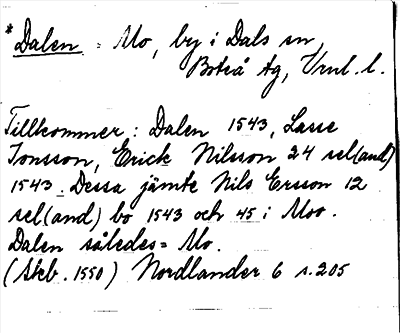 *Dalen = Mo, by i Dals sn,
Boteå tg, Vnl. l.
Tillkommer: Dalen 1543, Lasse
Jonsson, Erick Nilsson 24 sel(and)
1543. Dessa jämte Nils Ersson 12
sel(and) bo 1543 och 45 i Moo.
Dalen således = Mo.
(Skb. 1550) Nordlander 6 s. 205